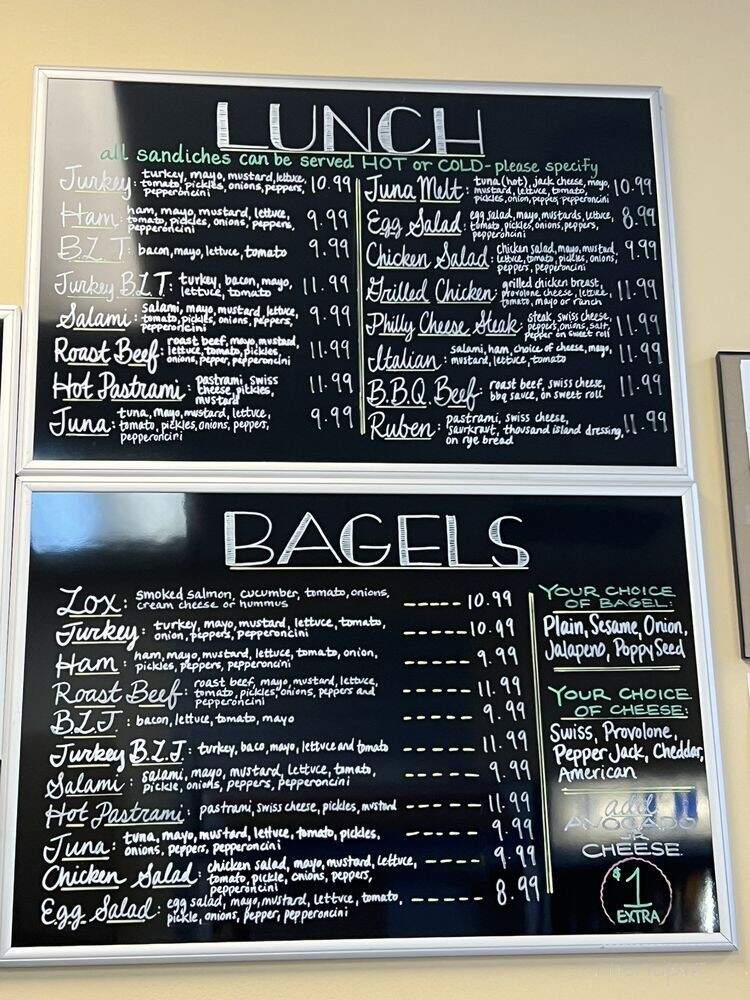 LUNCH
all sandiches can be served HOT or COLD - please specify
Turkey: turkey, mayo, mustard, lettuce,
tomato, pickles, onions, peppers,
pepperoncini
10.99
Ham: ham, mayo, mustard, lettuce,
tomato, pickles, onions, peppers,
pepperoncini
9.99
B.L.T: bacon, mayo, lettuce, tomato
9.99
Turkey B.L.T: turkey, bacon, mayo,
lettuce, tomato
11.99
Salami: salami, mayo, mustard, lettuce
tomato, pickles, onions, peppers,
pepperoncini
9.99
Roast Beef: roast beef, mayo, mustard,
lettuce, tomato, pickles,
onions, pepper, pepperoncini
11.99
Hot Pastrami: pastrami, swiss
cheese, pickles,
mustard
11.99
Tuna: tuna, mayo, mustard, lettuce,
tomato, pickles, onions, peppers,
pepperoncini
9.99
Tuna Melt: tuna (hot), jack cheese, mayo,
mustard, lettuce, tomato,
pickles, onion, pepper, pepperoncini
10.99
Egg Salad: egg salad, mayo, mustards, lettuce,
tomato, pickles, onions, peppers,
pepperoncini
8.99
Chicken Salad: chicken salad, mayo, mustard,
lettuce, tomato, pickles, onions,
peppers, pepperoncini
9.99
Grilled Chicken: grilled chicken breast,
provolone cheese, lettuce,
tomato, mayo or ranch
11.99
Philly Cheese Steak: steak, swiss cheese,
peppers, onions, salt,
pepper on sweet roll
11.99
Italian: salami, ham, choice of cheese, mayo,
mustard, lettuce, tomato
11.99
B.B.Q. Beef: roast beef, swiss cheese,
bbq sauce, on sweet roll
11.99
Ruben: pastrami, swiss cheese,
saurkraut, thousand island dressing,
on rye bread
11.99
BAGELS
Lox: smoked salmon, cucumber, tomato, onions,
cream cheese or hummus
----- 10.99
Turkey: turkey, mayo, mustard, lettuce, tomato,
onion, peppers, pepperoncini
----- 10.99
Ham: ham, mayo, mustard, lettuce, tomato, onion,
pickles, peppers, pepperoncini
----- 9.99
Roast Beef: roast beef, mayo, mustard, lettuce,
tomato, pickles, onions, peppers and
pepperoncini
----- 11.99
B.L.T: bacon, lettuce, tomato, mayo
----- 9.99
Turkey B.L.T: turkey, baco, mayo, lettuce and tomato
----- 11.99
Salami: salami, mayo, mustard, lettuce, tomato,
pickle, onions, peppers, pepperoncini
----- 9.99
Hot Pastrami: pastrami, swiss cheese, pickles, mustard
----- 11.99
Tuna: tuna, mayo, mustard, lettuce, tomato, pickles,
onions, peppers, pepperoncini
----- 9.99
Chicken Salad: chicken salad, mayo, mustard, lettuce,
tomato, pickle, onions, peppers,
pepperoncini
---- 9.99
Egg Salad: egg salad, mayo, mustard, lettuce, tomato,
pickle, onions, pepper, pepperoncini
----- 8.99
YOUR CHOICE
OF BAGEL:
Plain, Sesame, Onion,
Jalapeno, Poppy Seed
YOUR CHOICE
OF CHEESE:
Swiss, Provolone,
Pepper Jack, Cheddar,
American
add
AVOCADO
OR
CHEESE
$1
EXTRA